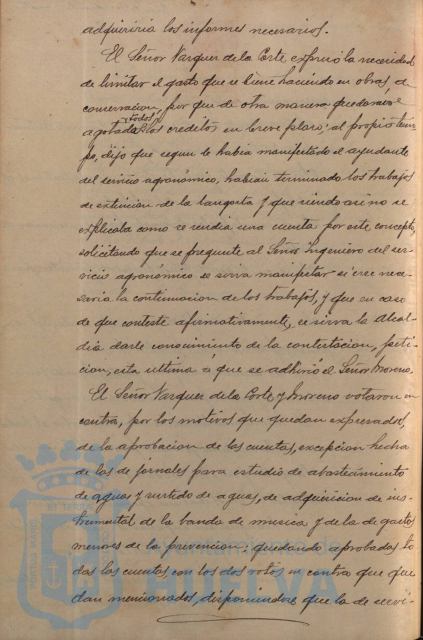 adquiriria los informes necesarios.
El Señor Vazquez de la Corte expuso la necesidad
de limitar el gasto que se viene haciendo en obras, de
conservacion, por que de otra manera quedarian
agotados todos los creditos en breve plazo; al propio tiem-
po, dijo que segun le habia manifestado el ayudante
del servicio agronómico, habian terminado los trabajos
de extincion de la langosta y que siendo asi no se
explicaba como se rendia una cuenta por este concepto,
solicitando que se pregunte al Señor Ingeniero del ser-
vicio agronómico se sirva manifestar si cree nece-
saria la continuacion de los trabajos, y que en caso
de que conteste afirmativamente, se sirva la Alcal-
dia darle conocimiento de la contestacion, peti-
cion, esta ultima á que se adhirió el Señor Moreno.
El Señor Vazquez de la Corte y Moreno votaron en
contra, por los motivos que quedan expresados,
de la aprobacion de las cuentas, excepcion hecha
de las de jornales para estudio de abastecimiento
de aguas y surtido de aguas, de adquisicion de ins-
trumental de la banda de musica y de la de gastos
menores de la prevencion; quedando aprobadas to-
das las cuentas, con los dos votos en contra que que-
dan mencionados, disponiendose que la de servi-